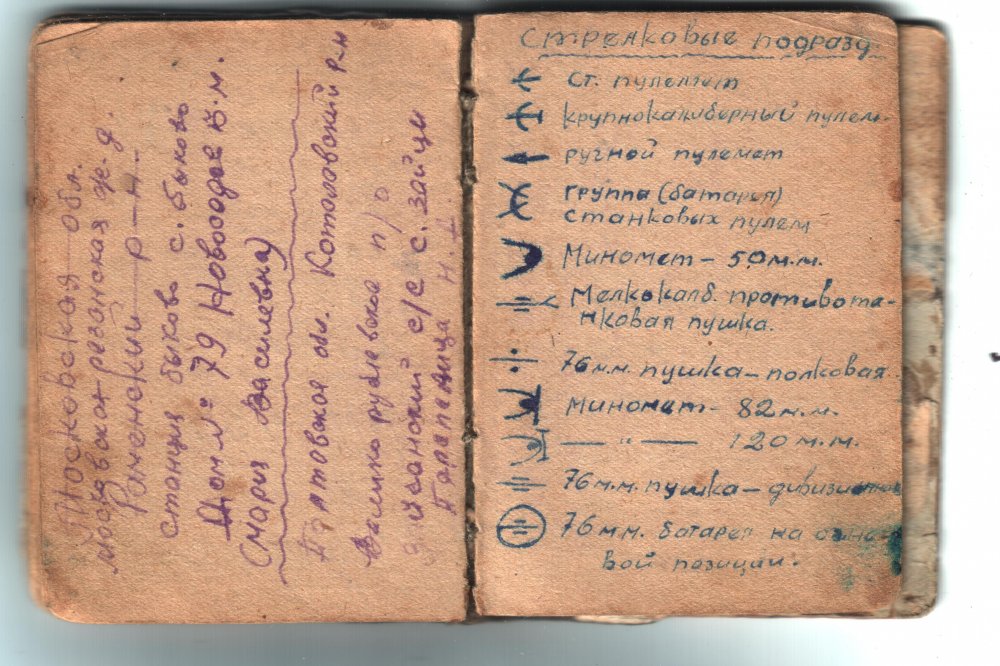 Московская обл.
Московско резанская ж-д.
Раменский р-н.
станция быково с. быково
Дом № 79 Новоодое В.М.
(Мария Василевна)
овская обл. Котоловский р-н
п/о
с/с с. зайци
Гарапевица Н. Т
Стрелковые подразд.
Ст. пулемет
крупнокалиберный пулем.
ручной пулемет
группа (батарея)
станковых пулем
Миномет - 50м.м.
Мелкокалб. противота-
нковая пушка.
76м.м. пушка - полковая
Миномет - 82м.м.
— " — 120м.м.
76м.м. пушка - дивизион
76мм. батарея на огне
вой позиции.